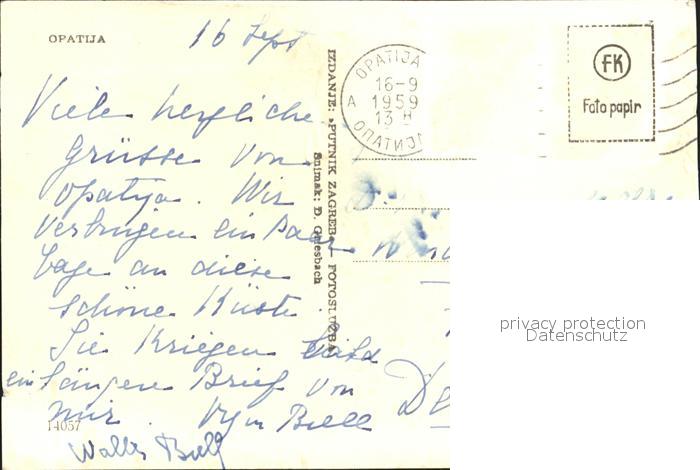 OPATIJA
16 Sept
Viele herzliche
Grüsse von
Opatija. Wir
verbringen ein paar
Tage an diese
schöne Küste.
Sie kriegen bald
ein längere Brief von
mir.
14057
IZDANJE: »PUTNIK ZAGREB« — FOTOSLUŽBA
Snimak: Đ. Griesbach
OPATIJA
16-9
A 1959
13 H
ОПАТИЈА
FK
Foto papir
privacy protection
Datenschutz